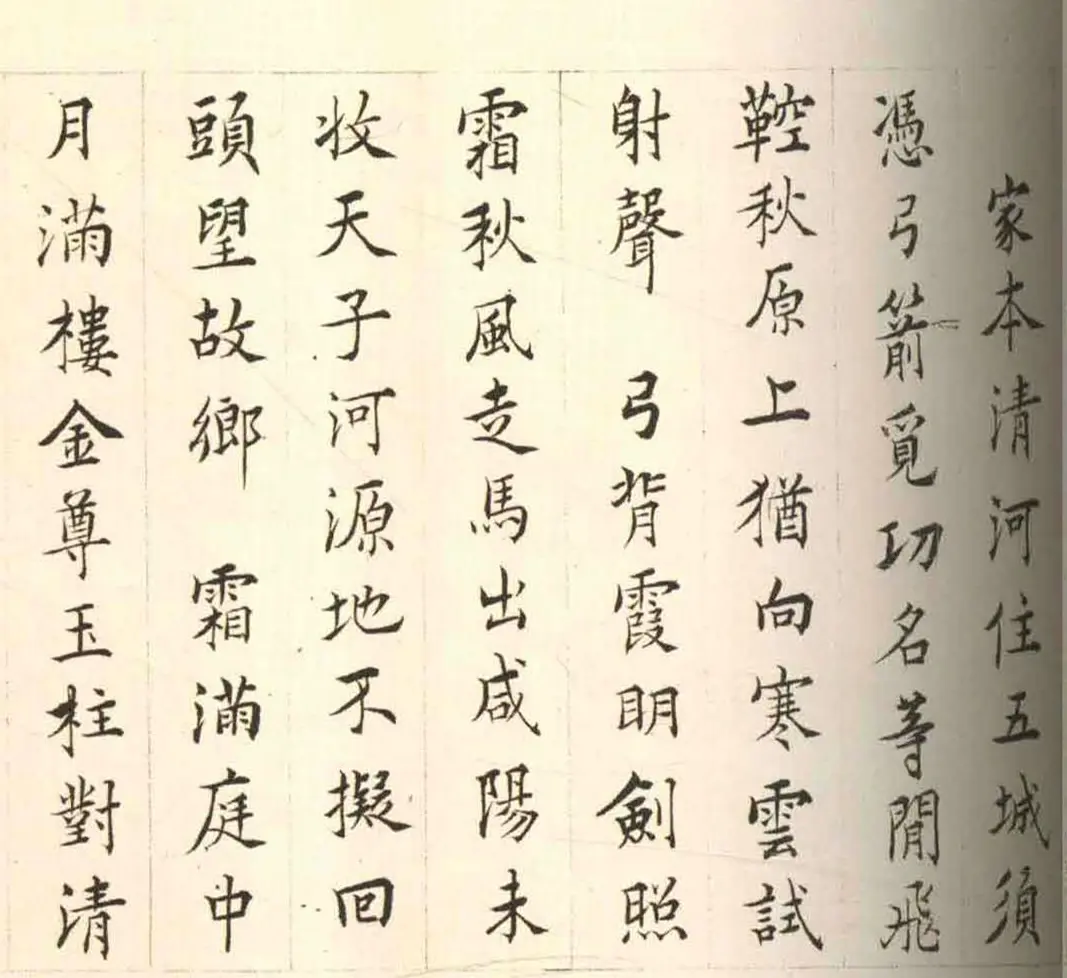 家本清河住五城須
憑弓箭覓功名等閒飛
鞚秋原上猶向寒雲試
射聲 弓背霞明劍照
霜秋風走馬出咸陽未
收天子河源地不擬回
頭望故鄉 霜滿庭中
月滿樓金尊玉柱對清